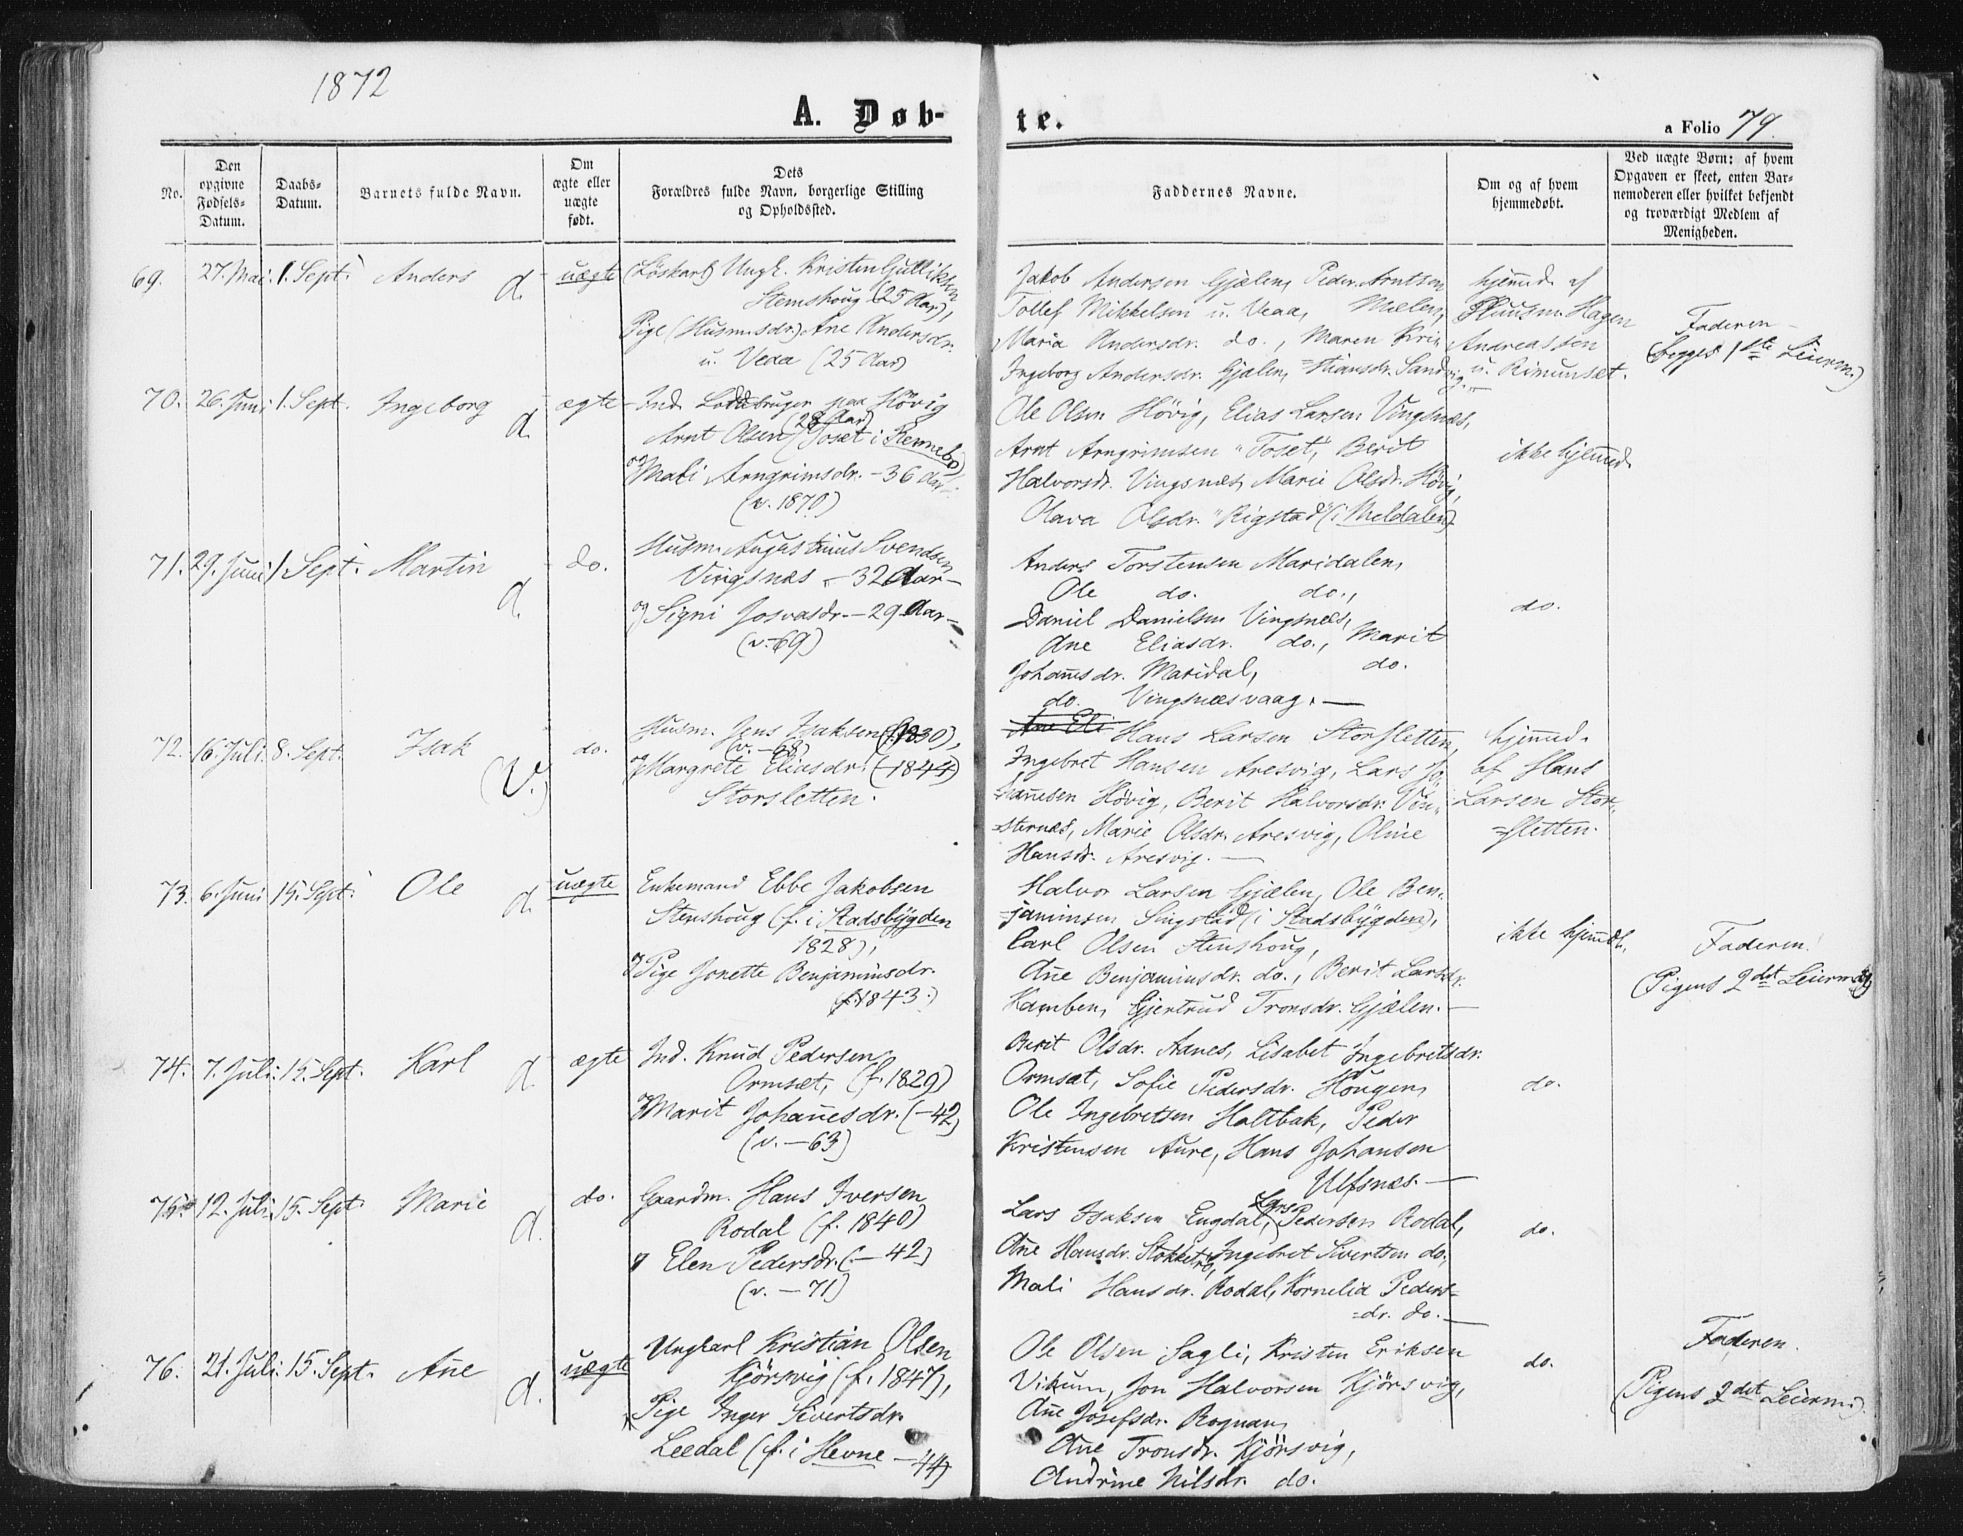 1872
A. Døb-
te.
a Folio 79.
No.
Den opgivne Fødsels-Datum.
Daabs-Datum.
Barnets fulde Navn.
Om ægte eller uægte født.
Dets Forældres fulde Navn, borgerlige Stilling og Opholdssted.
Faddernes Navne.
Om og af hvem hjemmedøbt.
Ved uægte Børn: af hvem Opgaven er skeet, enten Barnemoderen eller hvilket bekjendt og troværdigt Medlem af Menigheden.
69. 27. Mai. 1. Sept. Anders d. uægte
(Løskarl) Ungk. Kristen Gulliksen
Stenshoug (25 Aar),
Pige (Husm.sdr.) Ane Andersdr.
u. Veaa (25 Aar)
Jakob Andersen Gjælen, Peder Arntsen
Tollef Mikkelsen u. Veaa, Mælen,
Maria Andersdr. do., Maren Kri-
Ingeborg Andersdr. Gjælen, =stiansdr. Sandvig.
hjemmed. af
Huusm. Hagen
Andreassen
u. Rimunset.
Faderen
(begges 1ste Leierm.)
70. 26. Juni 1. Sept. Ingeborg d. ægte
Ind. Lodbruger paa Hövig
Arnt Olsen (28 Aar) (Toset i Rennebo)
og Mali Arngrimsdr. - 36 Aar -
(v. 1870)
Ole Olsen Hövig, Elias Larsen Vingsnæs,
Arnt Arngrimsen "Toset", Berit
Halvorsdr. Vingsnæs, Marie Olsdr. Hövig,
Olava Olsdr. "Rigstad" (i Meldalen)
ikke hjemmed.
71. 29. Juni 1. Sept. Martin d. do.
Husm. Augustinus Svendsen
Vingsnæs - 32 Aar -
og Signi Josvasdr. - 29 Aar -
(v. -69)
Anders Torstensen Maridalen,
Ole do. do.,
Daniel Danielsen Vingsnæs,
Ane Eliasdr. do., Marit
Johannesdr. Maridal, do.
do. Vingsnæsvaag. -
do.
72. 16. Juli. 8. Sept. Isak (V.) do.
Husm. Jens Isaksen (f. 1830),
(v. -68)
og Margrete Eliasdr. (-1844)
Storsletten.
Ane Eli Hans Larsen Storsletten,
Ingebret Hansen Aresvig, Lars Jo-
hannesen Hövig, Berit Halvorsdr. Vin-
=sternæs, Marie Olsdr. Aresvig, Oline
Hansdr. Aresvig. -
hjemmed.
af Hans
Larsen Stor-
=sletten.
73. 6. Juni 15. Sept. Ole d. uægte
Enkemand Ebbe Jakobsen
Stenshoug (f. i Stadsbygden
1828),
og Pige Jonette Benjaminsdr.
(f. 1843.)
Halvor Larsen Gjælen, Ole Ben-
=jaminsen Singstad (i Stadsbygden),
Carl Olsen Stenshoug,
Ane Benjaminsdr. do., Berit Larsdr.
Kamben, Gjertrud Tronsdr. Gjælen. -
ikke hjemmdt.
Faderen.
(Pigens 2det Leiermaal)
74. 7. Juli. 15. Sept. Karl d. ægte
Ind. Knud Pedersen
Ormsæt, (f. 1829)
og Marit Johannesdr. (-42)
(v. -63)
Berit Olsdr. Aanes, Lisabet Ingebretsdr.
Ormsæt, Sofie Pedersdr. Hougen,
Ole Ingebretsen Holtbak, Peder
Kristensen Aure, Hans Johansen
Ulfsnæs. -
do.
75. 12. Juli 15. Sept. Marie d. do.
Gaardm. Hans Iversen
Rodal (f. 1840)
og Elen Pedersdr. (-42)
(v. -71)
Lars Isaksen Engdal, Lars Pedersen Rodal,
Ane Hansdr. Stokkerö, Ingebret Sivertsen do.,
Mali Hansdr. Rodal, Kornelia Peders-
=dr. do. -
do.
76. 21. Juli. 15. Sept. Ane d. uægte
Ungkarl Kristian Olsen
Kjörsvig (f. 1847),
Pige Inger Sivertsdr.
Leedal (f. i Hevne -44)
Ole Olsen Sagli, Kristen Eriksen
Vikum, Jon Halvorsen Kjörsvig,
Ane Josefsdr. Rognan,
Ane Tronsdr. Kjörsvig,
Andrine Nilsdr. do.
do.
Faderen.
(Pigens 2det Leierm.)